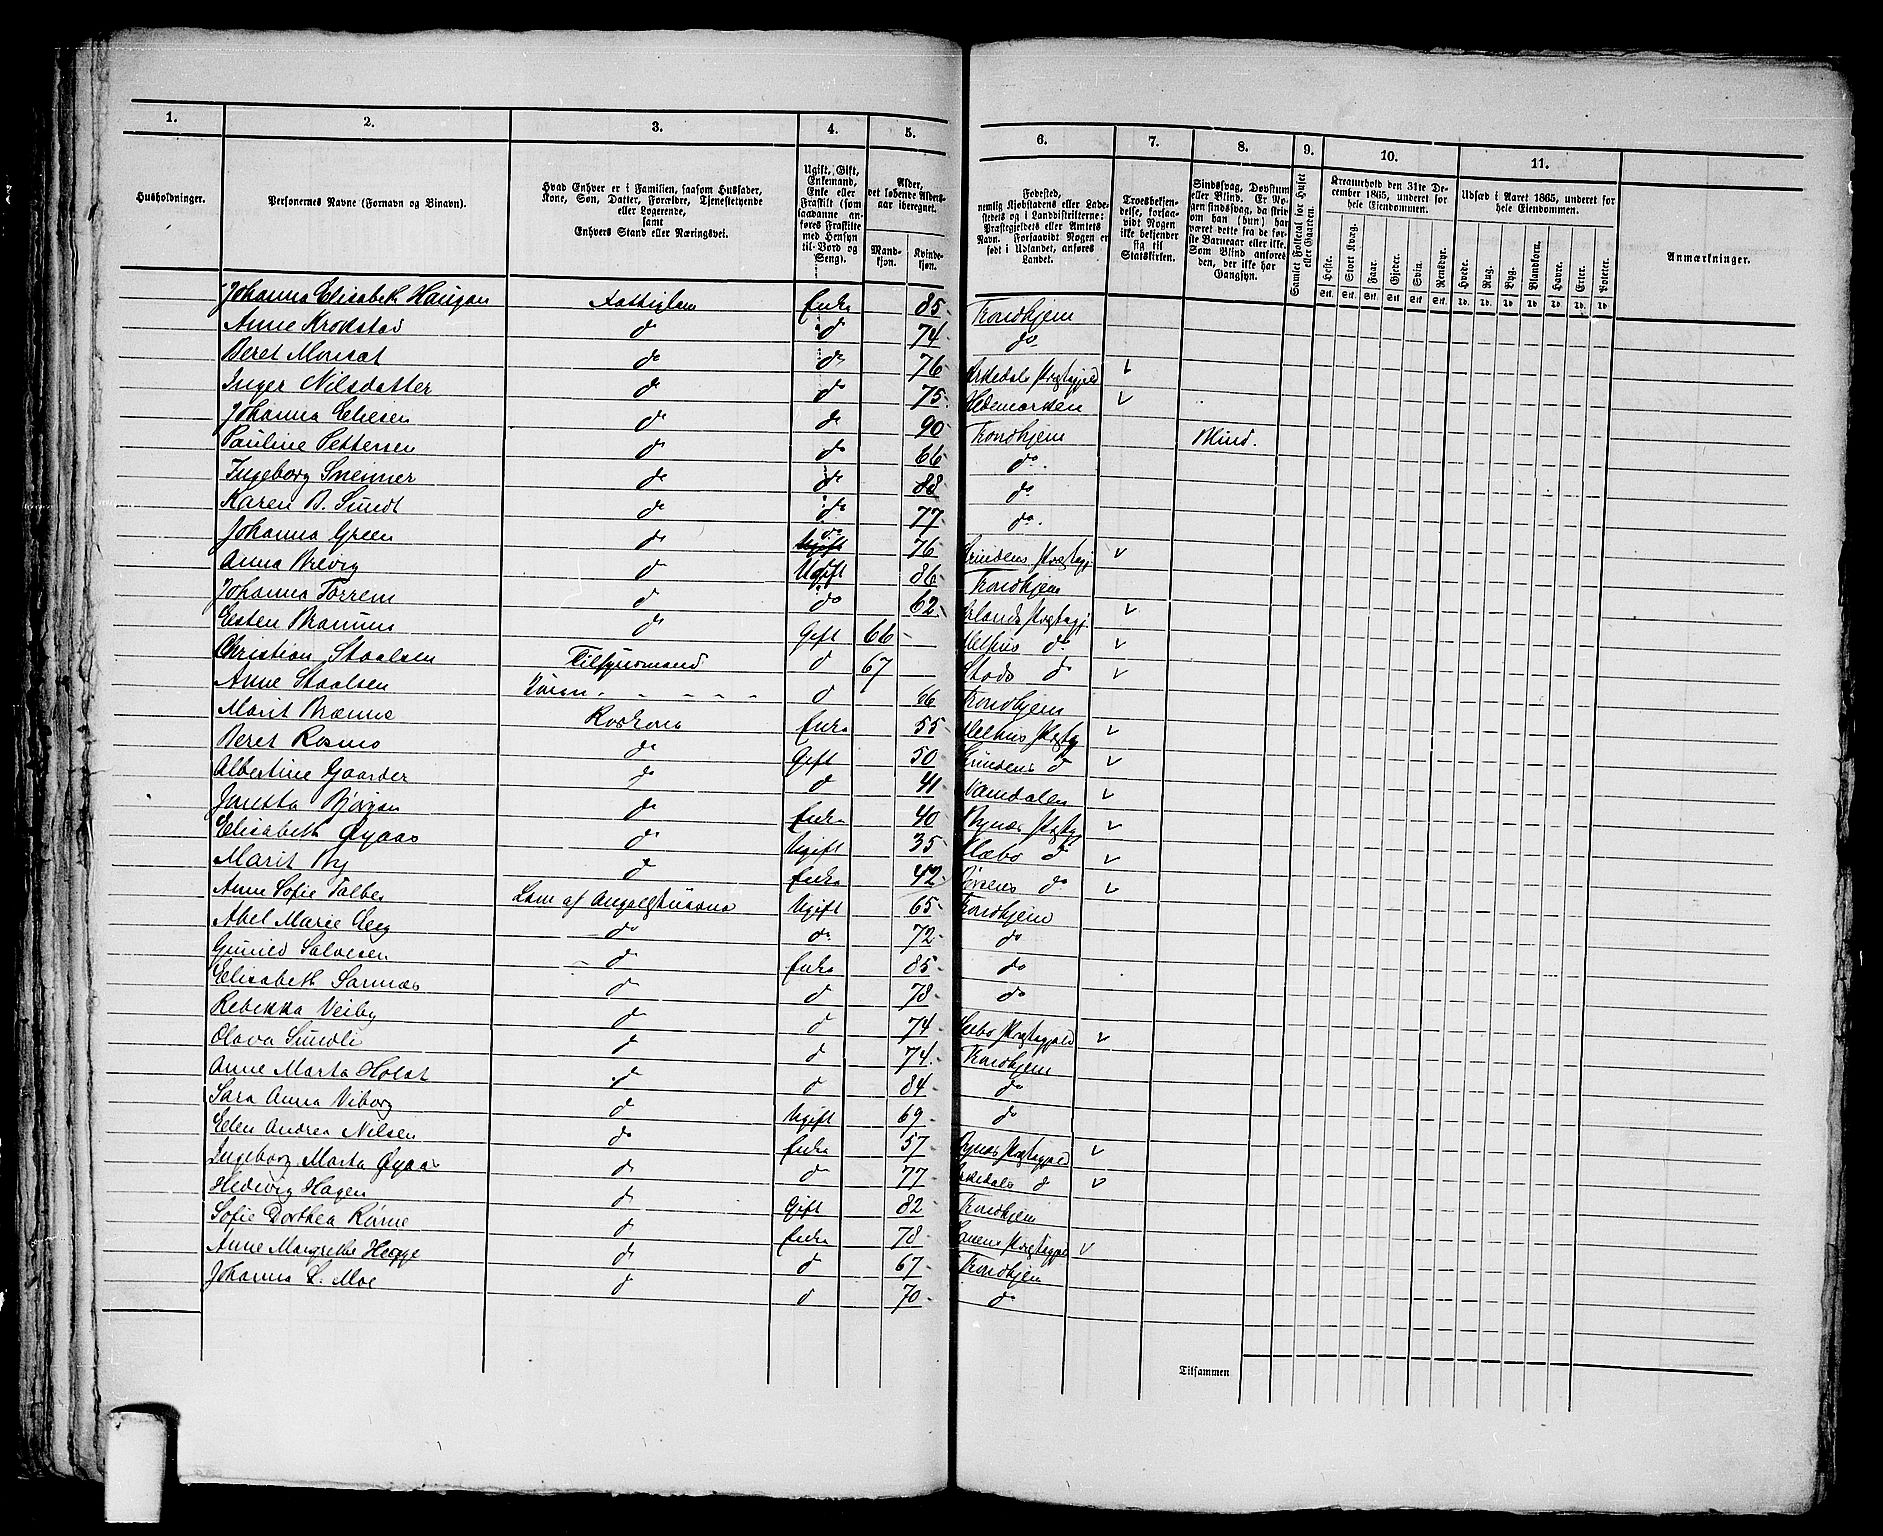 1. 2. 3. 4. 5. 6. 7. 8. 9. 10. 11.
Husholdninger.
Personernes Navne (Fornavn og Binavn).
Hvad Enhver er i Familien, saasom Husfader, Kone, Søn, Datter, Forældre, Tjenestetyende eller Logerende, samt Enhvers Stand eller Næringsvei.
Ugift, Gift, Enkemand, Enke eller Fraskilt (som saadanne anføres Fraskilte med Hensyn til Bord og Seng).
Alder, det løbende Alders-aar iberegnet.
Mand-kjøn. Kvinde-kjøn.
Fødested, nemlig Kjøbstadens eller Lade-stedets og i Landdistrikterne: Præstegjeldets eller Amtets Navn. Forsaavidt Nogen er født i Udlandet, anføres Landet.
Troesbekjen-delse, forsaa-vidt Nogen ikke bekjender sig til Statskirken.
Sindssvag, Døvstum eller Blind. Er No-gen sindssvag, da skriv om han (hun) har været dette fra de før-ste Barneaar eller ikke. Som Blind anføres den, der ikke har Gangsyn.
Samlet Folketal for Huset eller Gaarden.
Kreaturhold den 31te De-cember 1865, underet for hele Eiendommen.
Heste. Stort Kvæg. Faar. Gjeder. Svin. Rensdyr.
Udsæd i Aaret 1865, underet for hele Eiendommen.
Hvede. Rug. Byg. Blandkorn. Havre. Erter. Poteter.
Anmærkninger.
Stk. Stk. Stk. Stk. Stk. Stk. Td. Td. Td. Td. Td. Td. Td.
Johanna Elisabeth Haugan Fattiglem Enke 85 Trondhjem
Anne Krokstad do do 74 do
Beret Monsat do do 76 Orkedals Prstgjeld v
Inger Nilsdatter do do 75 Hedemarken v
Johanna Eliesen do do 90 Trondhjem Blind.
Pauline Pettersen do do 66 do.
Ingeborg Sneimer do do 88 do
Karen B. Sundt do do 77 do.
Johanna Green do do 76 Strindens Prstgj v
Anna Brevig do Ugift 86 Trondhjem
Johanna Torrem do do 62 Ørlands Prstgj v
Esten Bramm do Gift 66 Melhus do v
Christian Staalsen Tilsynsmand do 67 Stods do v
Anne Staalsen do 66 Trondhjem
Marit Brænne Kokkone Enke 55 Melhus Prstgj v
Beret Rosmo do Gift 50 Strindens do v
Albertine Gaarder do do 41 Namdalen v
Janetta Bjørgan do Enke 40 Bynæs Prstgj v
Elisabeth Øyaas do Ugift 35 Klæbo do v
Marit By do Enke 42 Børsens do v
Anne Sofie Talbes Lem af Ugift 65 Trondhjem
Abel Marie Seeg do do 72 do
Gunild Salvesen do Enke 85 do
Elisabeth Sannæs do do 78 do
Rebekka Veiby do do 74 Selbo Prstgjeld v
Olava Sundli do do 74 Trondhjem
Anne Marta Holst do do 84 do
Sara Anna Viborg do Ugift 69 do
Elen Andrea Nilsen do Enke 57 Bynæs Prstgjeld v
Ingeborg Marta Øyaas do do 77 Orkedals do v
Hedevig Hagen do Gift 82 Trondhjem
Sofie Dorthea Rønne do Enke 78 Prstgjeld v
Anne Margrethe Hegge do do 67 Trondhjem
Johanna L. Moe do do 70 do
Tilsammen